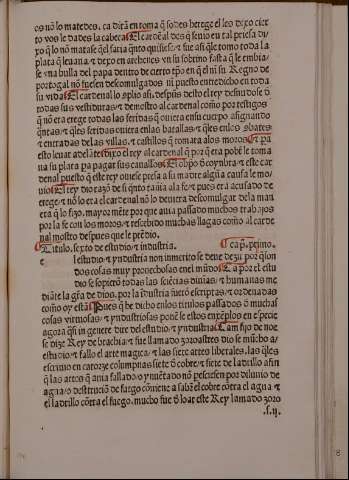 os nõ lo matedes, ca dirã en toma q̃ sodes herege el leo dixo cier
to vos le dades la cabeça El cardẽal des q̃ se vio en tal priesa di
xo q̃ lo nõ matase q̃l faria q̃nto quisiese/ & fue asi q̃le tomo toda la
plata q̃ leuaua/ & dexo en archenes vn su sobrino fasta q̃ le embia
se vna bulla del papa dentro de certo tp̃o en q̃ el ni su Regno de
portogal nõ fuesen descomulgados ni puesto entredicho en toda
su vida El cardenal lo
todas sus vestiduras/ & demostro al cardenal como por testigos
que nõ era erege todas las feridas q̃ ouiera en su cuerpo asignando
q̃ntas/ & q̃les feridas ouiera en las batallas/ & q̃les en los
& entradas de las villas/ & castillos q̃ tomara alos moros/ & pa
esto leuar adelãte dixo el rey al cardenal q̃ por q̃ era pobre le toma
ua su plata pa pagar sus cauallos El obpõ d'coynbra/ & este car
denal puesto q̃ este rey ouiese presa a su madre algũa causa le mo
uio El rey dio razõ de si q̃nto tañia ala fe/ & pues era acusado de
erege/ & nõ lo era el cardenal nõ lo deuiera descomulgar dela man
era q̃ lo fizo, mayor mẽte por que auia passado muchos trabajos
por la fe con los moros/ & rescebido muchas llagas como al carde
nal mostro despues que le prẽdio.
Titulo. sexto de estudio & industria. Cap. primo.
e l estudio/ & yndustria non inmerito se deue dezir por q̃ son
dos cosas muy prouechosas en el mũdo Ca por el estu
dio se sopierõ todas las sciẽcias diuinas/ & humanas me
diãte la gr̃a de dios, por la industria fuerõ escriptas/ & ordenadas
como oy están Pues q̃ he dicho en los titulos passados d' muchas
cosas virtuosas/ & yndustriosas ponẽ le estos enxẽplos en especie
agora q̃si in genere dire del estudio/ & yndustria Cam fijo de noe
se dize Rey de brachia/ & fue llamado zoroastres dio se mucho a/
estudio/ & fallo el arte magica/ & las siete artes liberales, las q̃les
escriuio en catorze columpnas siete d' cobre/ & siete de ladrillo a fin
q̃ las artes q̃ auia fallado/ o ynuẽtado nõ pesciesen por diluuio de
agua/ o destruciõ de fuego cõuiene a saber el cobre cõtra el agua/ &
el ladrillo cõtra el fuego. mucho fue d' loar este Rey lamado zoro
.s.ij.